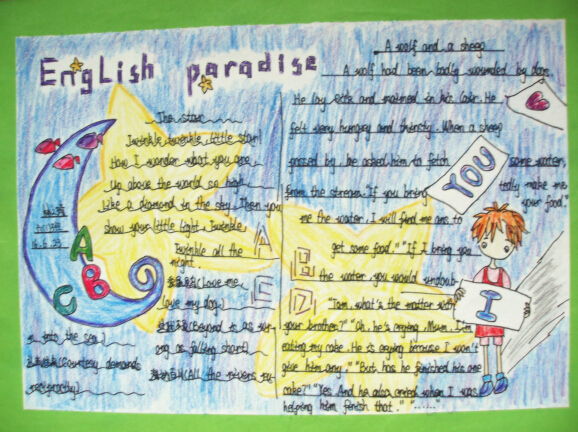 English paradise
The star
Twinkle twinkle little star
How I wonder what you are
Up above the world so high
Like a diamond in the sky. Then you
show your little light, Twinkle
Twinkle all the
night.
(Love me,
love my dog.)
(Beyond is as wr-
ong as falling short)
(All the rivers ru-
n into the sea.)
(Courtesy demands
reciprocity)
A
B
C
A
B
C
D
A wolf and a sheep
A wolf had been badly wounded by dogs.
He lay sick and maimed in his lair. He
felt very hungry and thirsty. When a sheep
passed by, he asked him to fetch some water
from the stream. "If you bring
me the water, I will find means to
get some food." "If I bring you
the water, you would undoub-
tedly make me
your food."
YOU
I
"Tom, what's the matter with
your brother?" "Oh, he's crying, Mum. I'm
eating my cake. He is crying because I won't
give him any." "But has he finished his one
cake?" "Yes. And he also cried when I was
helping him finish that." "......"